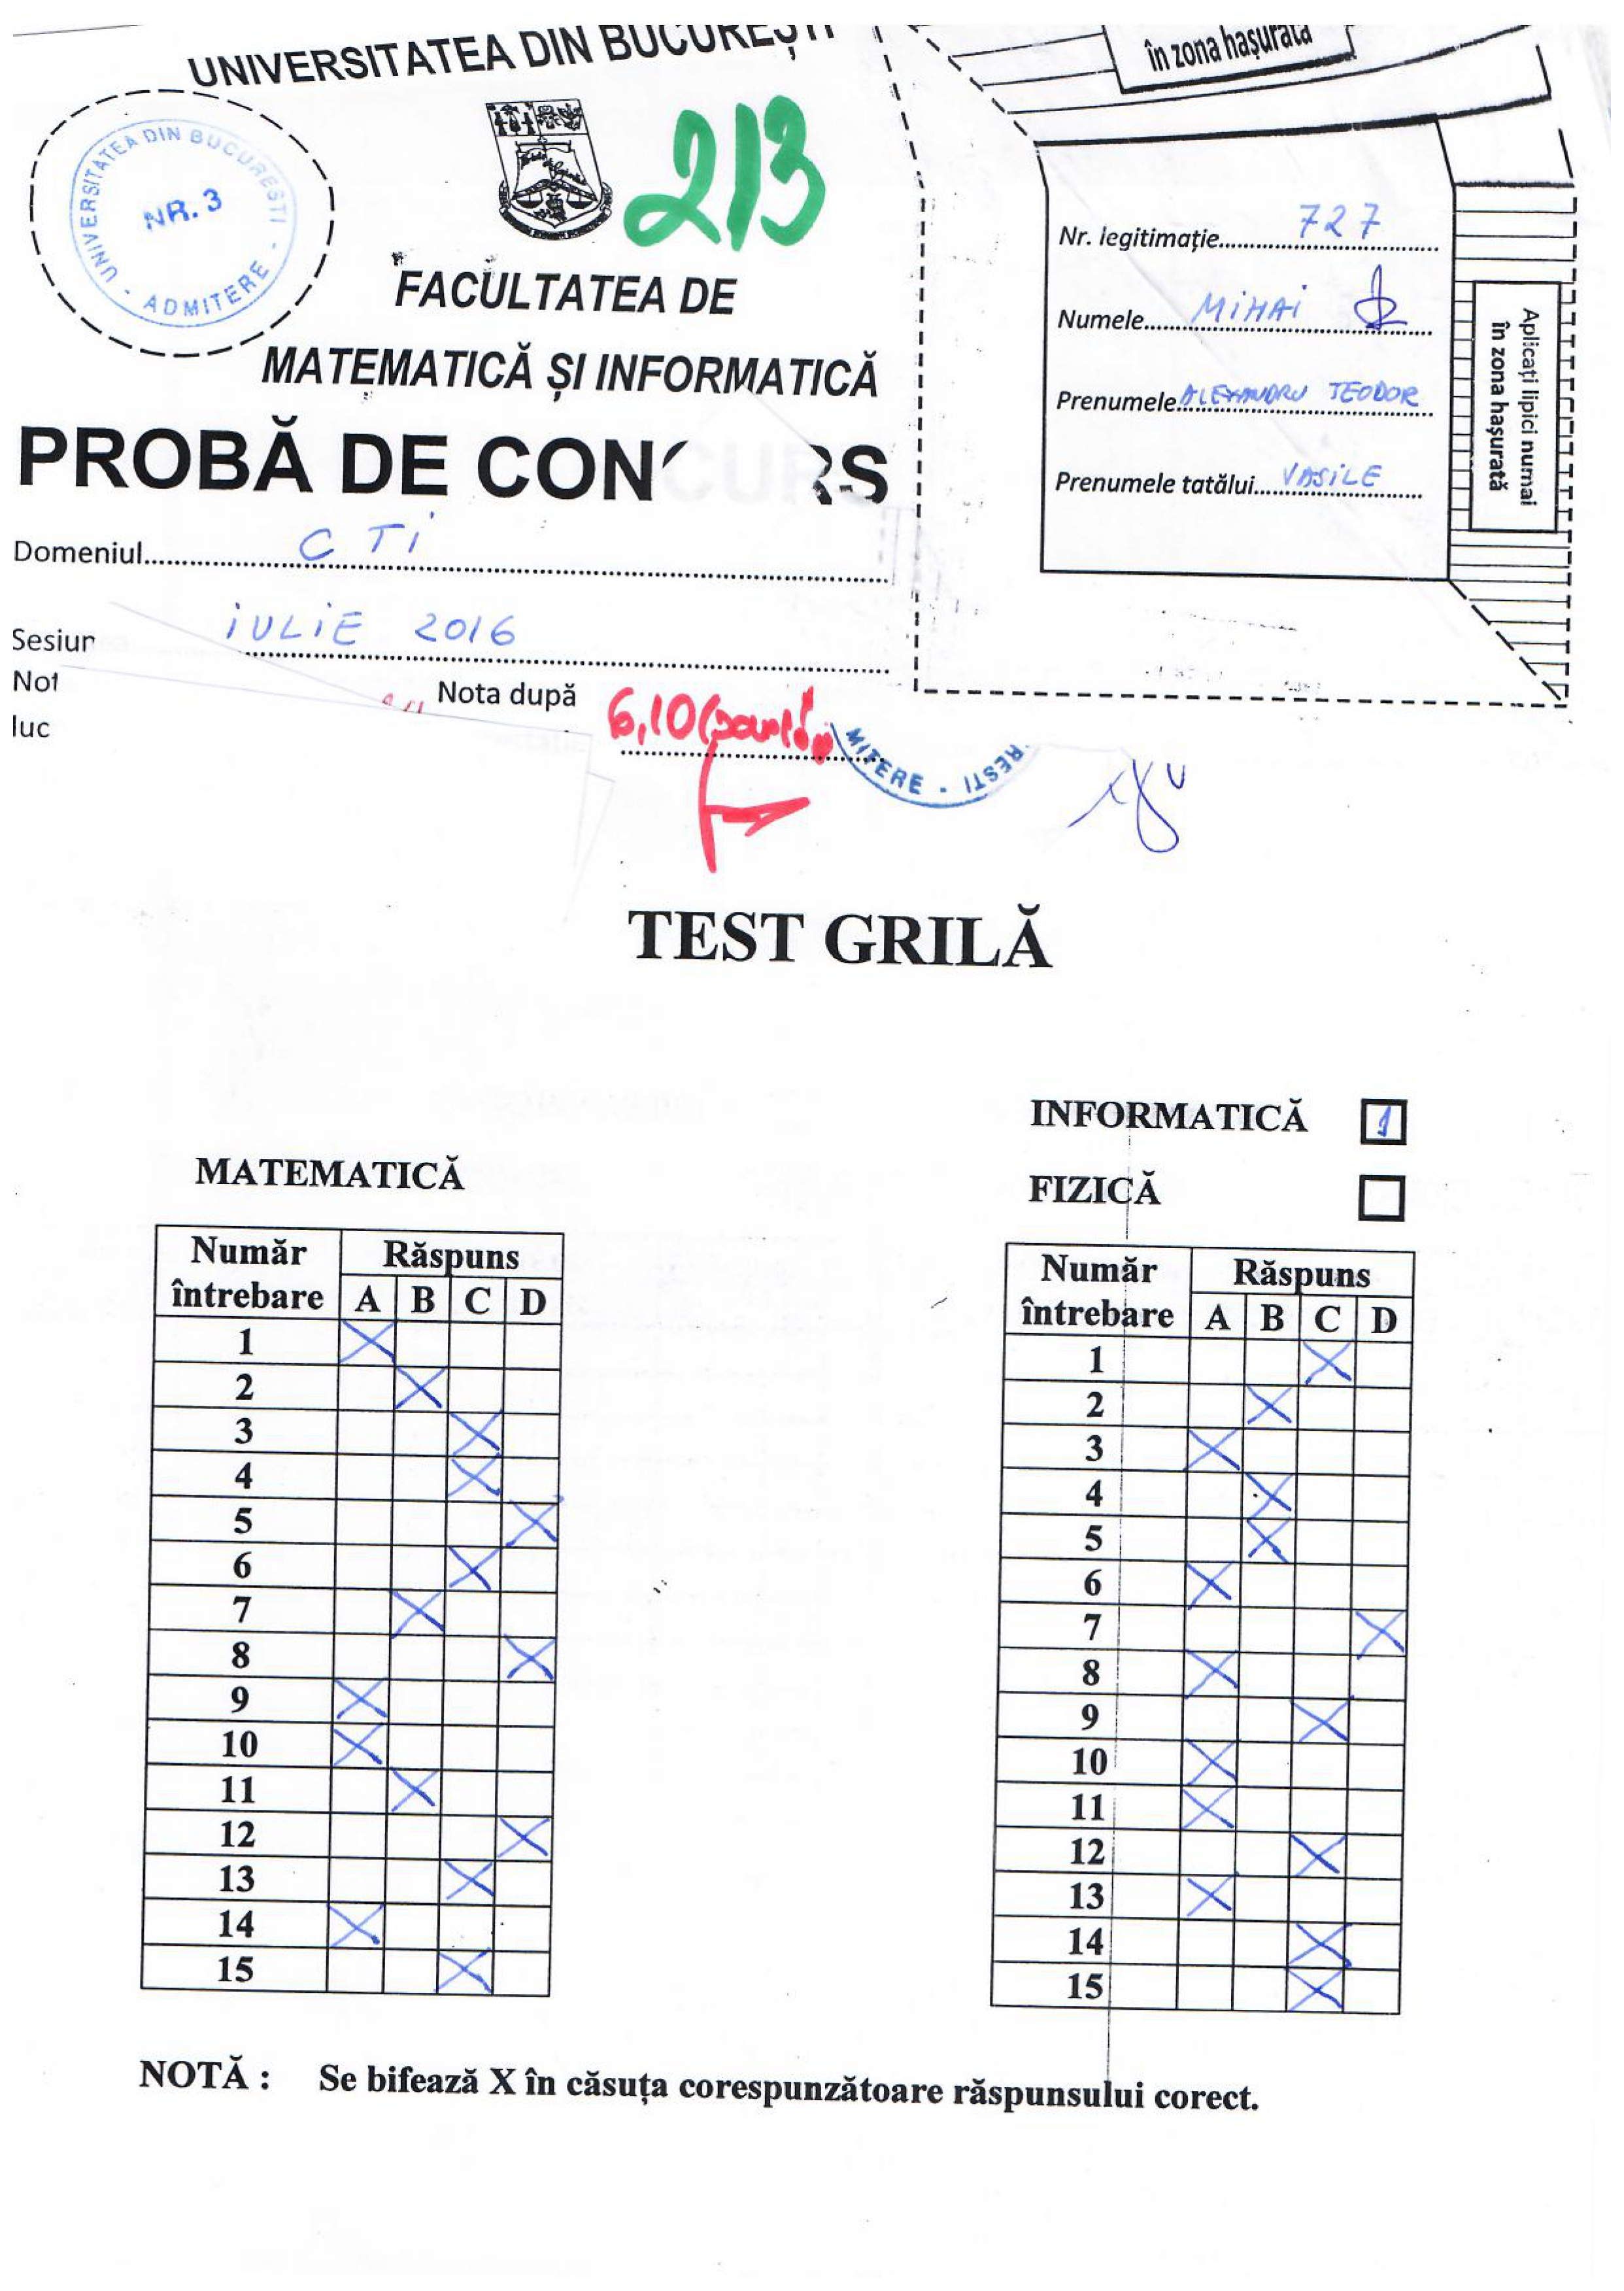 UNIVERSITATEA DIN BUCUREȘTI
în zona hașurată
UNIVERSITATEA DIN BUCURESTI - ADMITERE -
NR. 3
213
FACULTATEA DE
MATEMATICĂ ȘI INFORMATICĂ
PROBĂ DE CONCURS
Domeniul CTi
Sesiun iULiE 2016
Not
luc
Nota după 6,10
MITERE - RESTI
Nr. legitimație 727
Numele MiHAi
Prenumele ALEXANDRU TEODOR
Prenumele tatălui VASiLE
Aplicați lipici numai
în zona hașurată
TEST GRILĂ
MATEMATICĂ
Număr întrebare Răspuns
A B C D
1 X
2 X
3 X
4 X
5 X
6 X
7 X
8 X
9 X
10 X
11 X
12 X
13 X
14 X
15 X
INFORMATICĂ 1
FIZICĂ
Număr întrebare Răspuns
A B C D
1 X
2 X
3 X
4 X
5 X
6 X
7 X
8 X
9 X
10 X
11 X
12 X
13 X
14 X
15 X
NOTĂ : Se bifează X în căsuța corespunzătoare răspunsului corect.